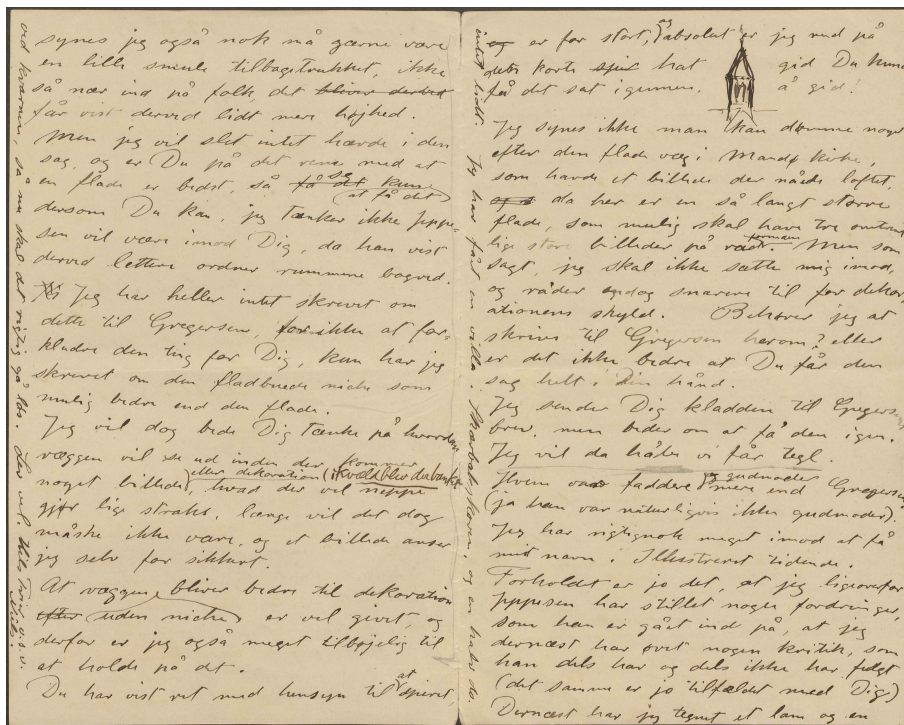 synes jeg også nok må gærne være
en lille smule tilbagetrukket, ikke
så nær ind på folk, det bliver derved
får vist derved lidt mere højhed.
Men jeg vil slet intet hævde i den
sag, og er Du på det rene med at
en flade er bedst, så få det kun
se at få det
dersom Du kan, jeg tænker ikke Jeppe-
sen vil være imod Dig, da han vist
derved lettere ordner rummene bagved.
Jeg har heller intet skrevet om
dette til Gregersen, for ikke at for-
kludre den ting for Dig, kun har jeg
skrevet om den fladbuede niche som
mulig bedre end den flade.
Jeg vil dog bede Dig tænke på hvordan
væggen vil se ud inden der kommer
noget billede, eller dekoration hvad der vel neppe
gjør lige straks, længe vil det dog
måske ikke være, og et billede anser
jeg selv for sikkert.
At væggen bliver bedre til dekoration
efter uden niche er vel givet, og
derfor er jeg også meget tilbøjelig til
at holde på det.
Du har vist ret med hensyn til at spiret
og er for stort, og absolut er jeg med på
dets korte spir hat gid Du kunde
få det sat igennem. å gid!
Jeg synes ikke man kan dømme noget
efter den flade væg i Mandø kirke,
som havde et billede der nåede loftet,
da her er en så langt større
flade, som mulig skal have tre
lige store billeder på. Men som
sagt, jeg skal ikke sætte mig imod,
og råder endog snarere til for dekor-
ationens skyld. Behøver jeg at
skrive til Gregersen herom? eller
er det ikke bedre at Du får den
sag helt i Din hånd.
Jeg sender Dig kladden til Gregersens
brev, men beder om at få den igen.
Jeg vil da håbe vi får tegl.
Hvem var faddere og gudmoder mere end Gregersen
(ja han var naturligvis ikke gudmoder).
Jeg har rigtignok meget imod at få
mit navn i Illustreret tidende.
Forholdet er jo det, at jeg ligeoverfor
Jeppesen har stillet nogen fordringer,
som han er gået ind på, at jeg
dernæst har øvet nogen kritik, som
han dels har og dels ikke har fulgt
(det samme er jo tilfældet med Dig)
Dernæst har jeg tegnet et lam og en
ved kværnen, så nu skal det rigtig gå løs. Lev vel
intet lidt. Jeg har fået en villa i og en halv